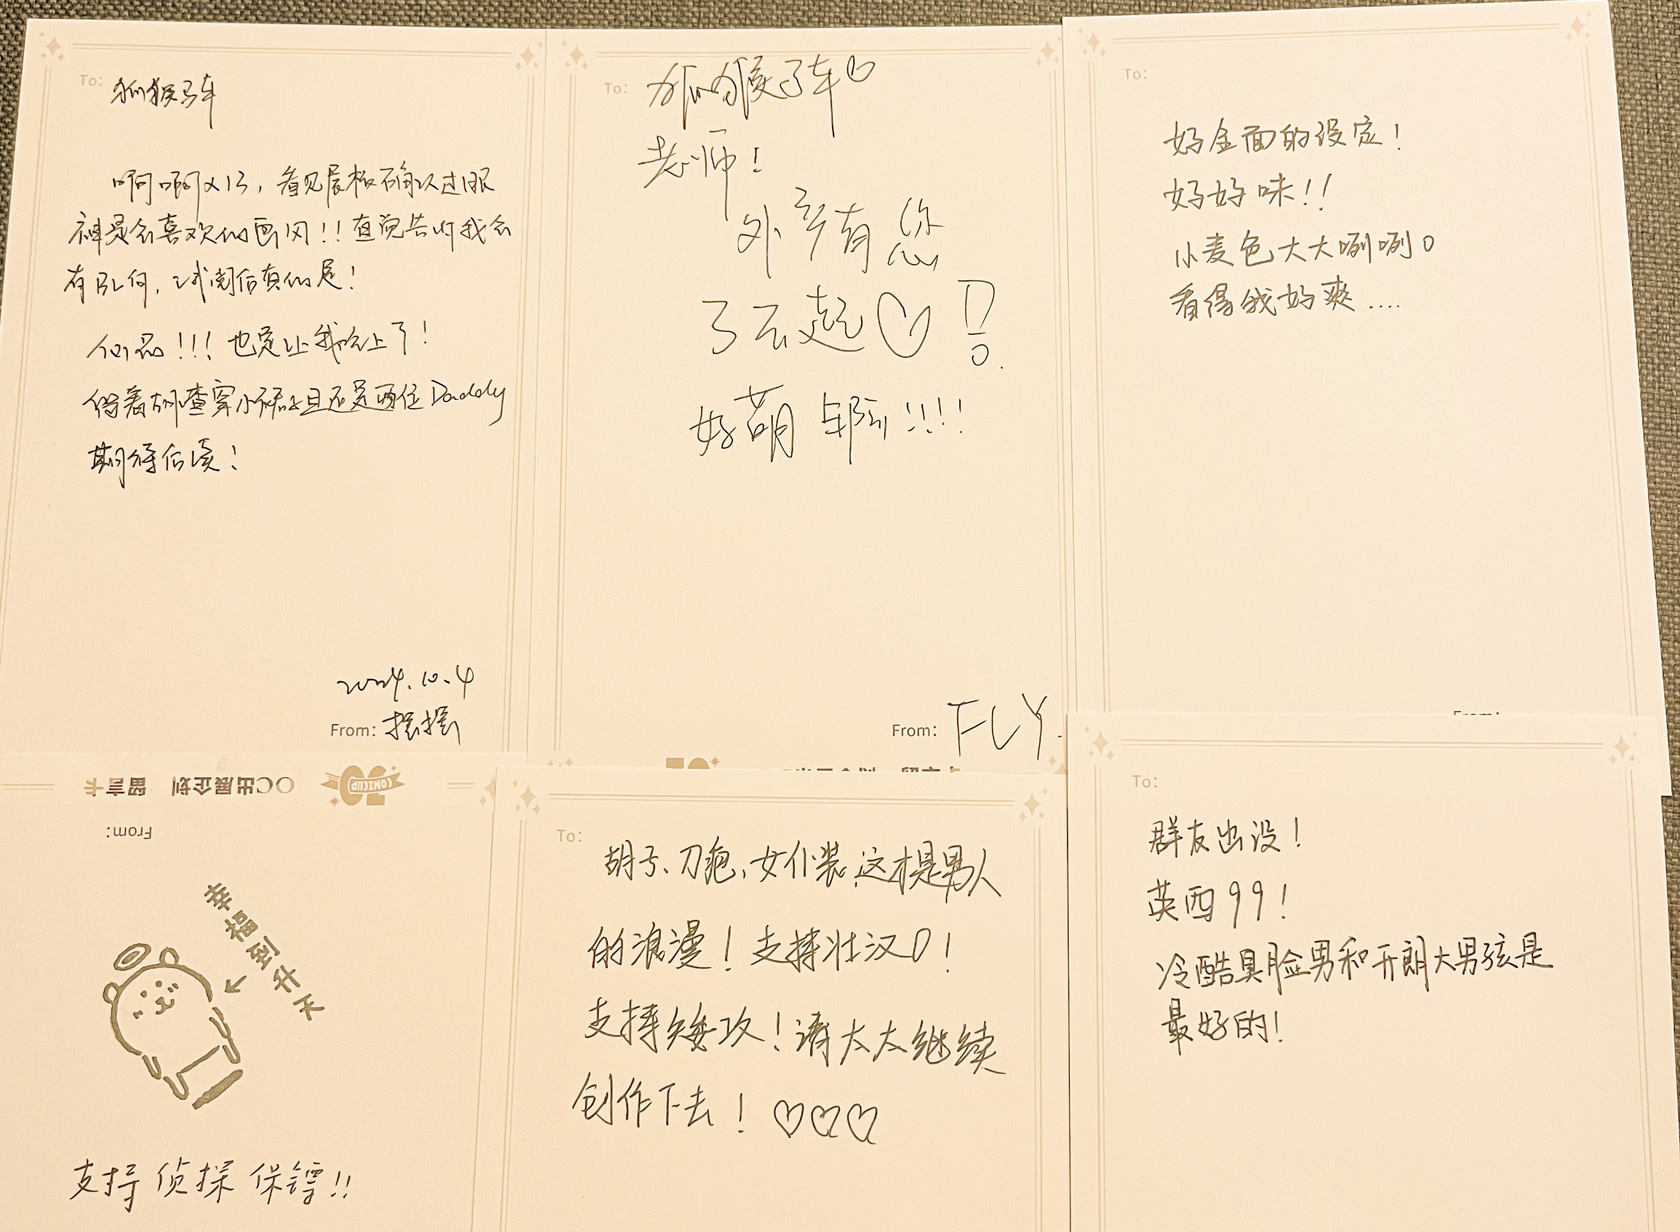 To: 猕猴子车
啊啊啊x13，看见展板确认过眼
神是会喜欢的画风！！直觉告诉我会
有BL向，试阅后真的是！
也是让我吃上了！
留着胡渣穿小裙子且还是两位Daddy
期待后续！
2024.10.4
From: 摇摇
To: 猕猴子车♡
老师！
有您
了不起♡！
好萌啊！！！！
From: FLY.
To:
好全面的设定！
好好味！！
小麦色大大咧咧0
看得我好爽....
From:
OC出展企划 留言卡
COMICUP
30
From:
幸福到升天
支持侦探保镖!!
To:
胡子、刀疤、女仆装，这才是男人
的浪漫！支持壮汉0！
支持矮攻！请太太继续
创作下去！♡♡♡
To:
群友出没！
英西99！
冷酷臭脸男和开朗大男孩是
最好的！